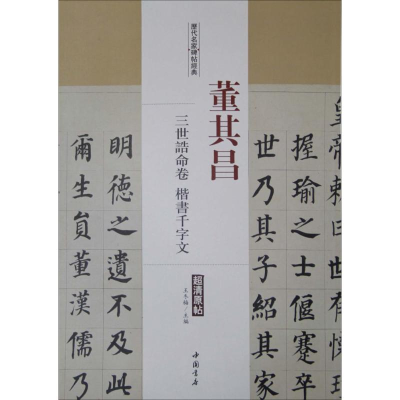 歷代名家碑帖經典
董其昌
三世誥命卷 楷書千字文
超清原帖
王冬梅/主編
中国书店
皇帝勅曰世
握瑜之士偃蹇卒
世乃其子紹其家
明德之遺不及此
爾生員董漢儒乃